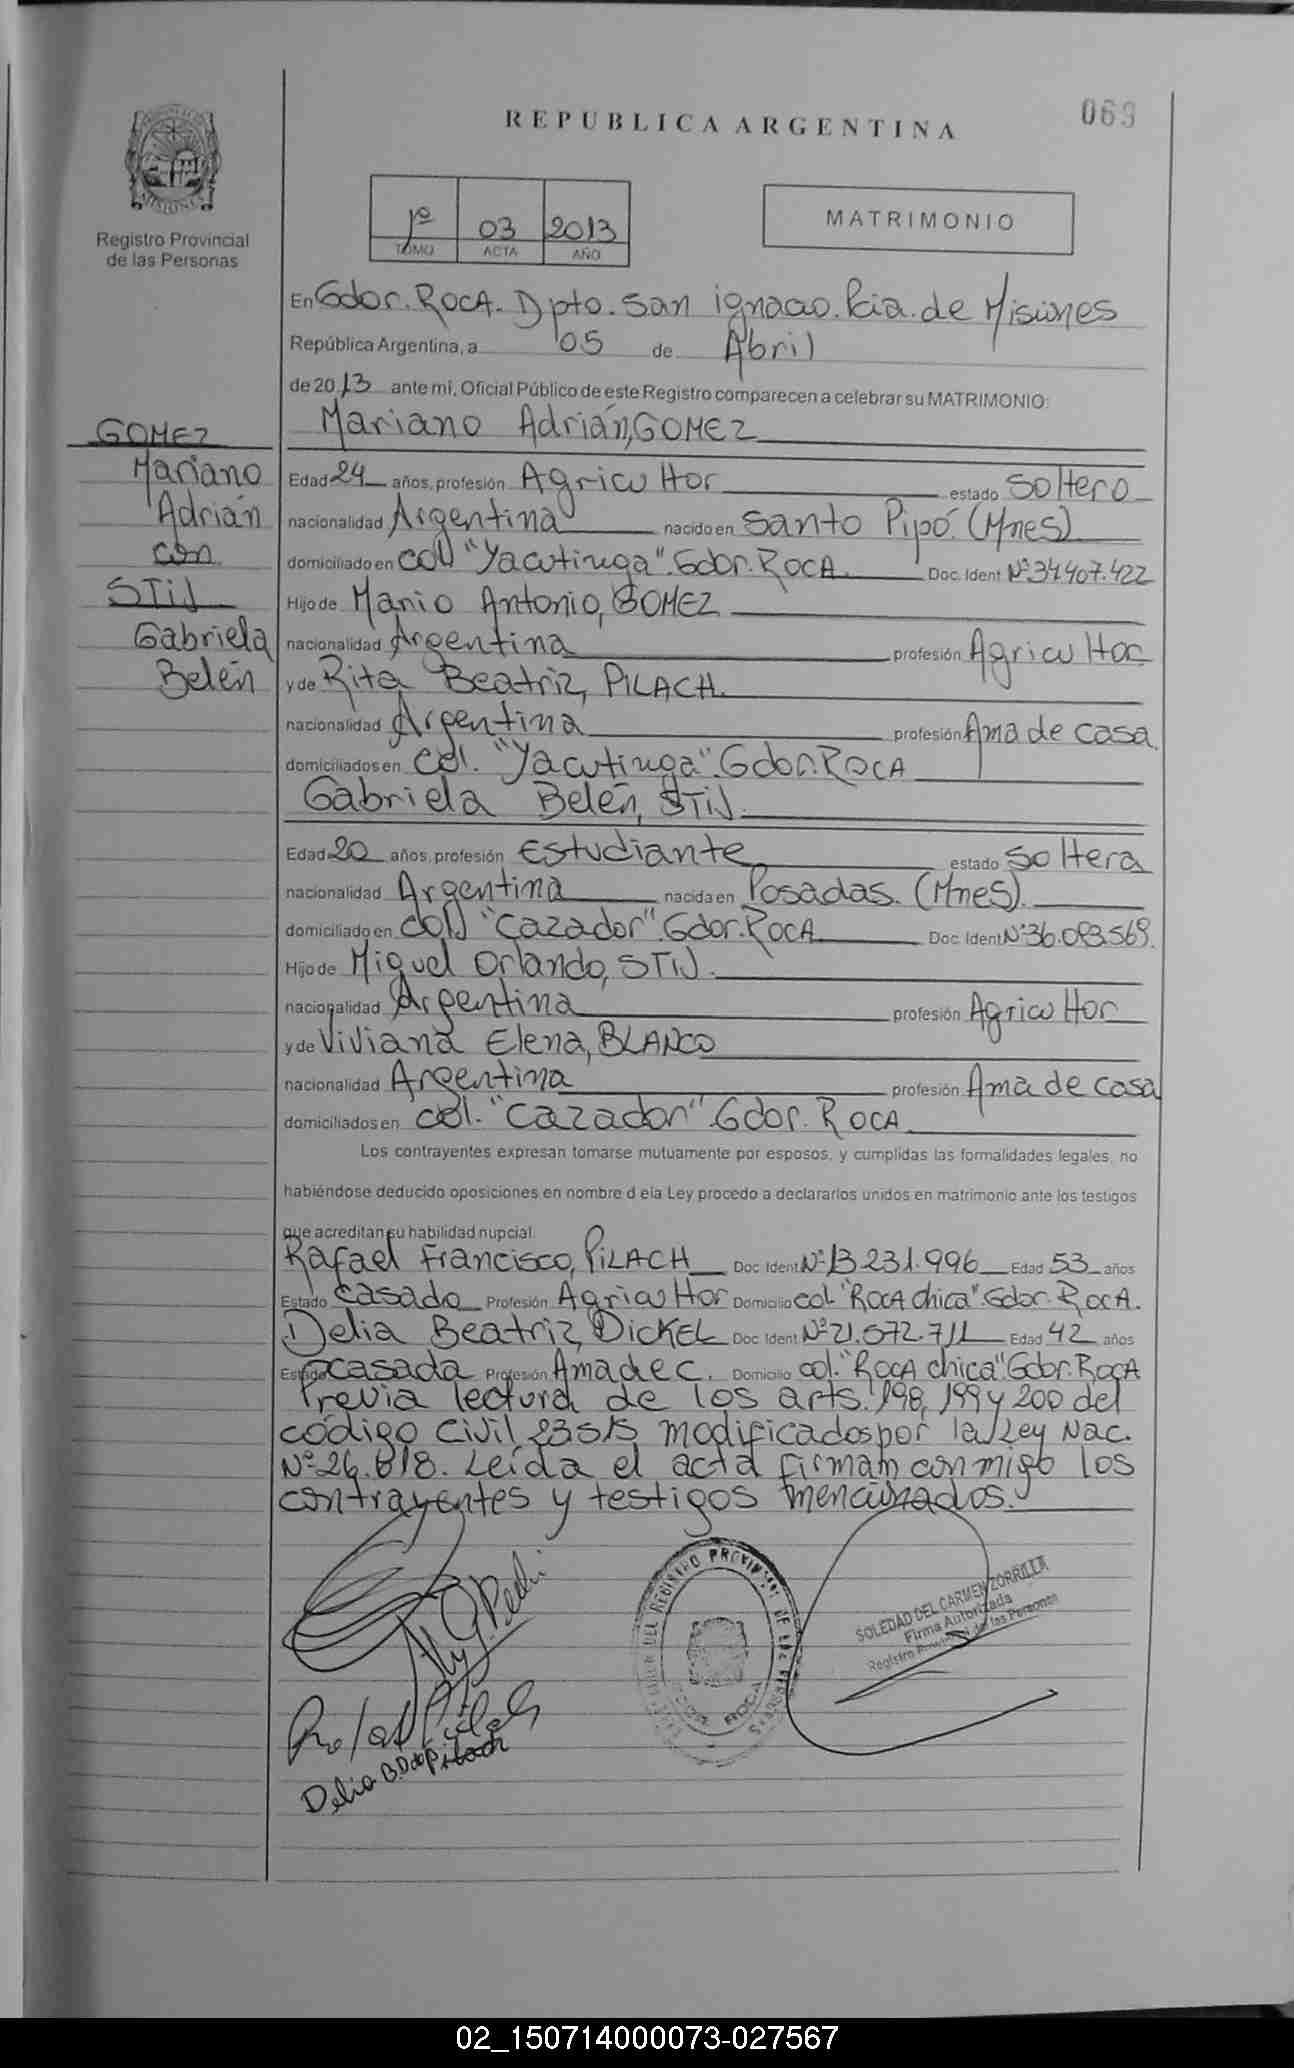 REPUBLICA ARGENTINA
069
MISIONES
Registro Provincial
de las Personas
1º 03 2013
TOMO ACTA AÑO
MATRIMONIO
En Gdor. ROCA. Dpto. San ignacio. Pcia. de Misiones
República Argentina, a 05 de Abril
de 20 13 ante mi, Oficial Público de este Registro comparecen a celebrar su MATRIMONIO:
GOMEZ
Mariano
Adrián
con
STIJ
Gabriela
Belén
Mariano Adrián, GOMEZ
Edad 24 años, profesión Agricultor estado Soltero
nacionalidad Argentina nacido en Santo Pipó. (Mnes)
domiciliado en Col. "Yacutinga". Gdor. ROCA. Doc. Ident Nº 34.407.422
Hijo de Mario Antonio, GOMEZ
nacionalidad Argentina profesión Agricultor
y de Rita Beatriz, PILACH.
nacionalidad Argentina profesión Ama de casa.
domiciliados en Col. "Yacutinga". Gdor. ROCA
Gabriela Belén, STIJ.
Edad 20 años, profesión Estudiante estado Soltera
nacionalidad Argentina nacida en Posadas. (Mnes).
domiciliado en Col. "Cazador". Gdor. ROCA Doc. Ident Nº 36.093.569.
Hijo de Miguel Orlando, STIJ.
nacionalidad Argentina profesión Agricultor
y de Viviana Elena, BLANCO
nacionalidad Argentina profesión Ama de casa
domiciliados en Col. "Cazador". Gdor. ROCA.
Los contrayentes expresan tomarse mutuamente por esposos, y cumplidas las formalidades legales, no
habiéndose deducido oposiciones en nombre d ela Ley procedo a declararlos unidos en matrimonio ante los testigos
que acreditan su habilidad nupcial.
Rafael Francisco, PILACH Doc Ident Nº 13.231.996 Edad 53 años
Estado Casado Profesión Agricultor Domicilio Col. "ROCA chica". Gdor. ROCA.
Delia Beatriz, DICKEL Doc Ident Nº 21.572.711 Edad 42 años
Estado casada Profesión Ama de C. Domicilio Col. "ROCA chica". Gdor. ROCA
Previa lectura de los arts. 198, 199 y 200 del
código Civil modificados por la Ley Nac.
Nº 26.618. Leída el acta firman conmigo los
contrayentes y testigos mencionados.
SOLEDAD DEL CARMEN ZORRILLA
Firma Autorizada
Registro Provincial de las Personas
DEL REGISTRO PROVINCIAL DE LAS PERSONAS
GDOR. ROCA
Delia B.D de Pilach
02_150714000073-027567